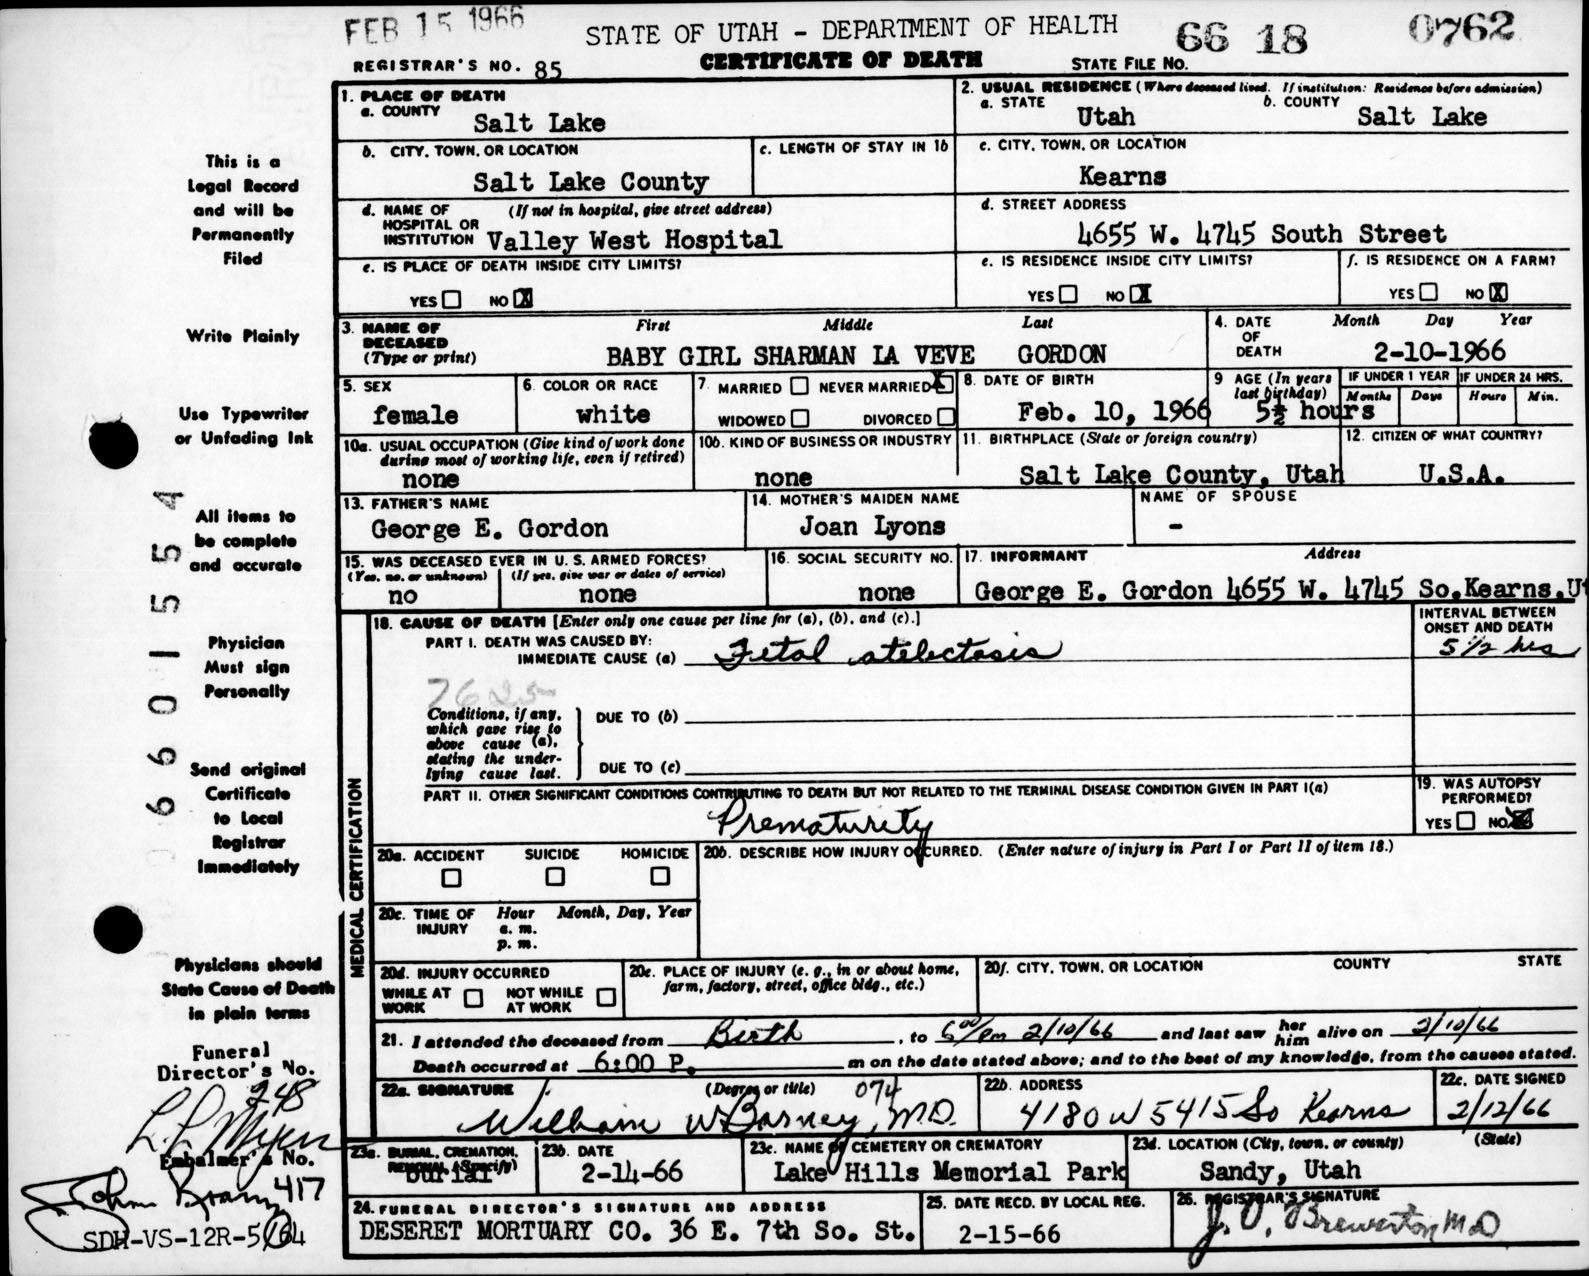 FEB 15 1966
STATE OF UTAH - DEPARTMENT OF HEALTH
66 18 0762
REGISTRAR'S NO. 85
CERTIFICATE OF DEATH
STATE FILE No.
This is a
Legal Record
and will be
Permanently
Filed
Write Plainly
Use Typewriter
or Unfading Ink
All items to
be complete
and accurate
Physician
Must sign
Personally
Send original
Certificate
to Local
Registrar
Immediately
Physicians should
State Cause of Death
in plain terms
Funeral
Director's No.
248
Embalmer's No.
417
SDH-VS-12R-5/64
6601554
1. PLACE OF DEATH
a. COUNTY
Salt Lake
2. USUAL RESIDENCE (Where deceased lived. If institution: Residence before admission)
a. STATE
Utah
b. COUNTY
Salt Lake
b. CITY, TOWN, OR LOCATION
Salt Lake County
c. LENGTH OF STAY IN 1b
c. CITY, TOWN, OR LOCATION
Kearns
d. NAME OF HOSPITAL OR INSTITUTION
(If not in hospital, give street address)
Valley West Hospital
d. STREET ADDRESS
4655 W. 4745 South Street
e. IS PLACE OF DEATH INSIDE CITY LIMITS?
YES NO X
e. IS RESIDENCE INSIDE CITY LIMITS?
YES NO X
f. IS RESIDENCE ON A FARM?
YES NO X
3. NAME OF DECEASED
(Type or print)
First Middle Last
BABY GIRL SHARMAN LA VEVE GORDON
4. DATE OF DEATH
Month Day Year
2-10-1966
5. SEX
female
6. COLOR OR RACE
white
7. MARRIED NEVER MARRIED X
WIDOWED DIVORCED
8. DATE OF BIRTH
Feb. 10, 1966
9 AGE (In years last birthday)
IF UNDER 1 YEAR
Months Days
IF UNDER 24 HRS.
Hours Min.
5½ hours
10a. USUAL OCCUPATION (Give kind of work done during most of working life, even if retired)
none
10b. KIND OF BUSINESS OR INDUSTRY
none
11. BIRTHPLACE (State or foreign country)
Salt Lake County, Utah
12. CITIZEN OF WHAT COUNTRY?
U.S.A.
13. FATHER'S NAME
George E. Gordon
14. MOTHER'S MAIDEN NAME
Joan Lyons
NAME OF SPOUSE
-
15. WAS DECEASED EVER IN U. S. ARMED FORCES?
(Yes, no, or unknown) (If yes, give war or dates of service)
no none
16. SOCIAL SECURITY NO.
none
17. INFORMANT Address
George E. Gordon 4655 W. 4745 So.Kearns,Ut
MEDICAL CERTIFICATION
18. CAUSE OF DEATH [Enter only one cause per line for (a), (b), and (c).]
INTERVAL BETWEEN ONSET AND DEATH
PART I. DEATH WAS CAUSED BY:
IMMEDIATE CAUSE (a) Fetal atelectasis
5 1/2 hrs
7625
Conditions, if any, which gave rise to above cause (a), stating the underlying cause last.
DUE TO (b)
DUE TO (c)
PART II. OTHER SIGNIFICANT CONDITIONS CONTRIBUTING TO DEATH BUT NOT RELATED TO THE TERMINAL DISEASE CONDITION GIVEN IN PART I(a)
Prematurity
19. WAS AUTOPSY PERFORMED?
YES NO X
20a. ACCIDENT SUICIDE HOMICIDE
20b. DESCRIBE HOW INJURY OCCURRED. (Enter nature of injury in Part I or Part II of item 18.)
20c. TIME OF INJURY
Hour Month, Day, Year
a. m.
p. m.
20d. INJURY OCCURRED
WHILE AT WORK NOT WHILE AT WORK
20e. PLACE OF INJURY (e. g., in or about home, farm, factory, street, office bldg., etc.)
20f. CITY, TOWN, OR LOCATION COUNTY STATE
21. I attended the deceased from Birth, to 6:00/Pm 2/10/66 and last saw her him alive on 2/10/66
Death occurred at 6:00 P. m on the date stated above; and to the best of my knowledge, from the causes stated.
22a. SIGNATURE (Degree or title) 074
William W Barney, M.D.
22b. ADDRESS
4180 W 5415 So Kearns
22c. DATE SIGNED
2/12/66
23a. BURIAL, CREMATION, REMOVAL (Specify)
burial
23b. DATE
2-14-66
23c. NAME OF CEMETERY OR CREMATORY
Lake Hills Memorial Park
23d. LOCATION (City, town, or county) (State)
Sandy, Utah
24. FUNERAL DIRECTOR'S SIGNATURE AND ADDRESS
DESERET MORTUARY CO. 36 E. 7th So. St.
25. DATE RECD. BY LOCAL REG.
2-15-66
26. REGISTRAR'S SIGNATURE
J. D. Brewerton, MD